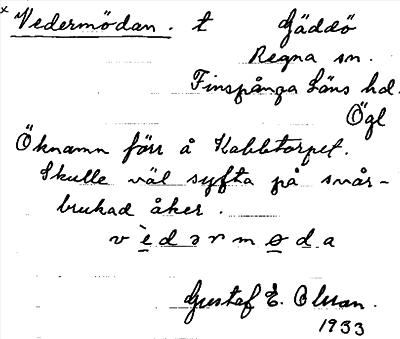 x Vedermödan. t Gäddö
Regna sn.
Finspånga Läns hd.
Ögl
Öknamn förr å Kabbtorpet.
Skulle väl syfta på svår-
brukad åker.
vèdərmøda
Gustaf E. Olsson.
1933